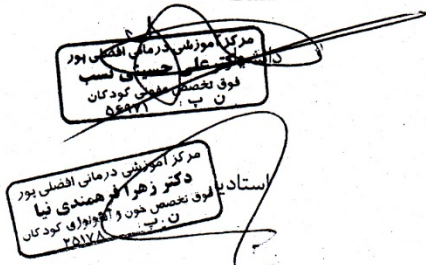 مرکز آموزشی درمانی افضلی پور
دکتر علی حسینی نسب
فوق تخصص عفونی کودکان
ن پ ۵۶۹۷۱
مرکز آموزشی درمانی افضلی پور
استادیا
دکتر زهرا فرهمندی نیا
فوق تخصص خون و آنکولوژی کودکان
ن.پ ۲۵۱۷۸